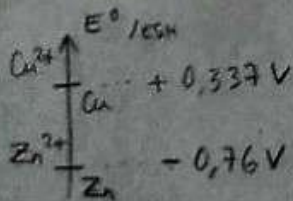 E° /ESH
Cu²⁺
Cu
+ 0,337 V
Zn²⁺
Zn
- 0,76 V